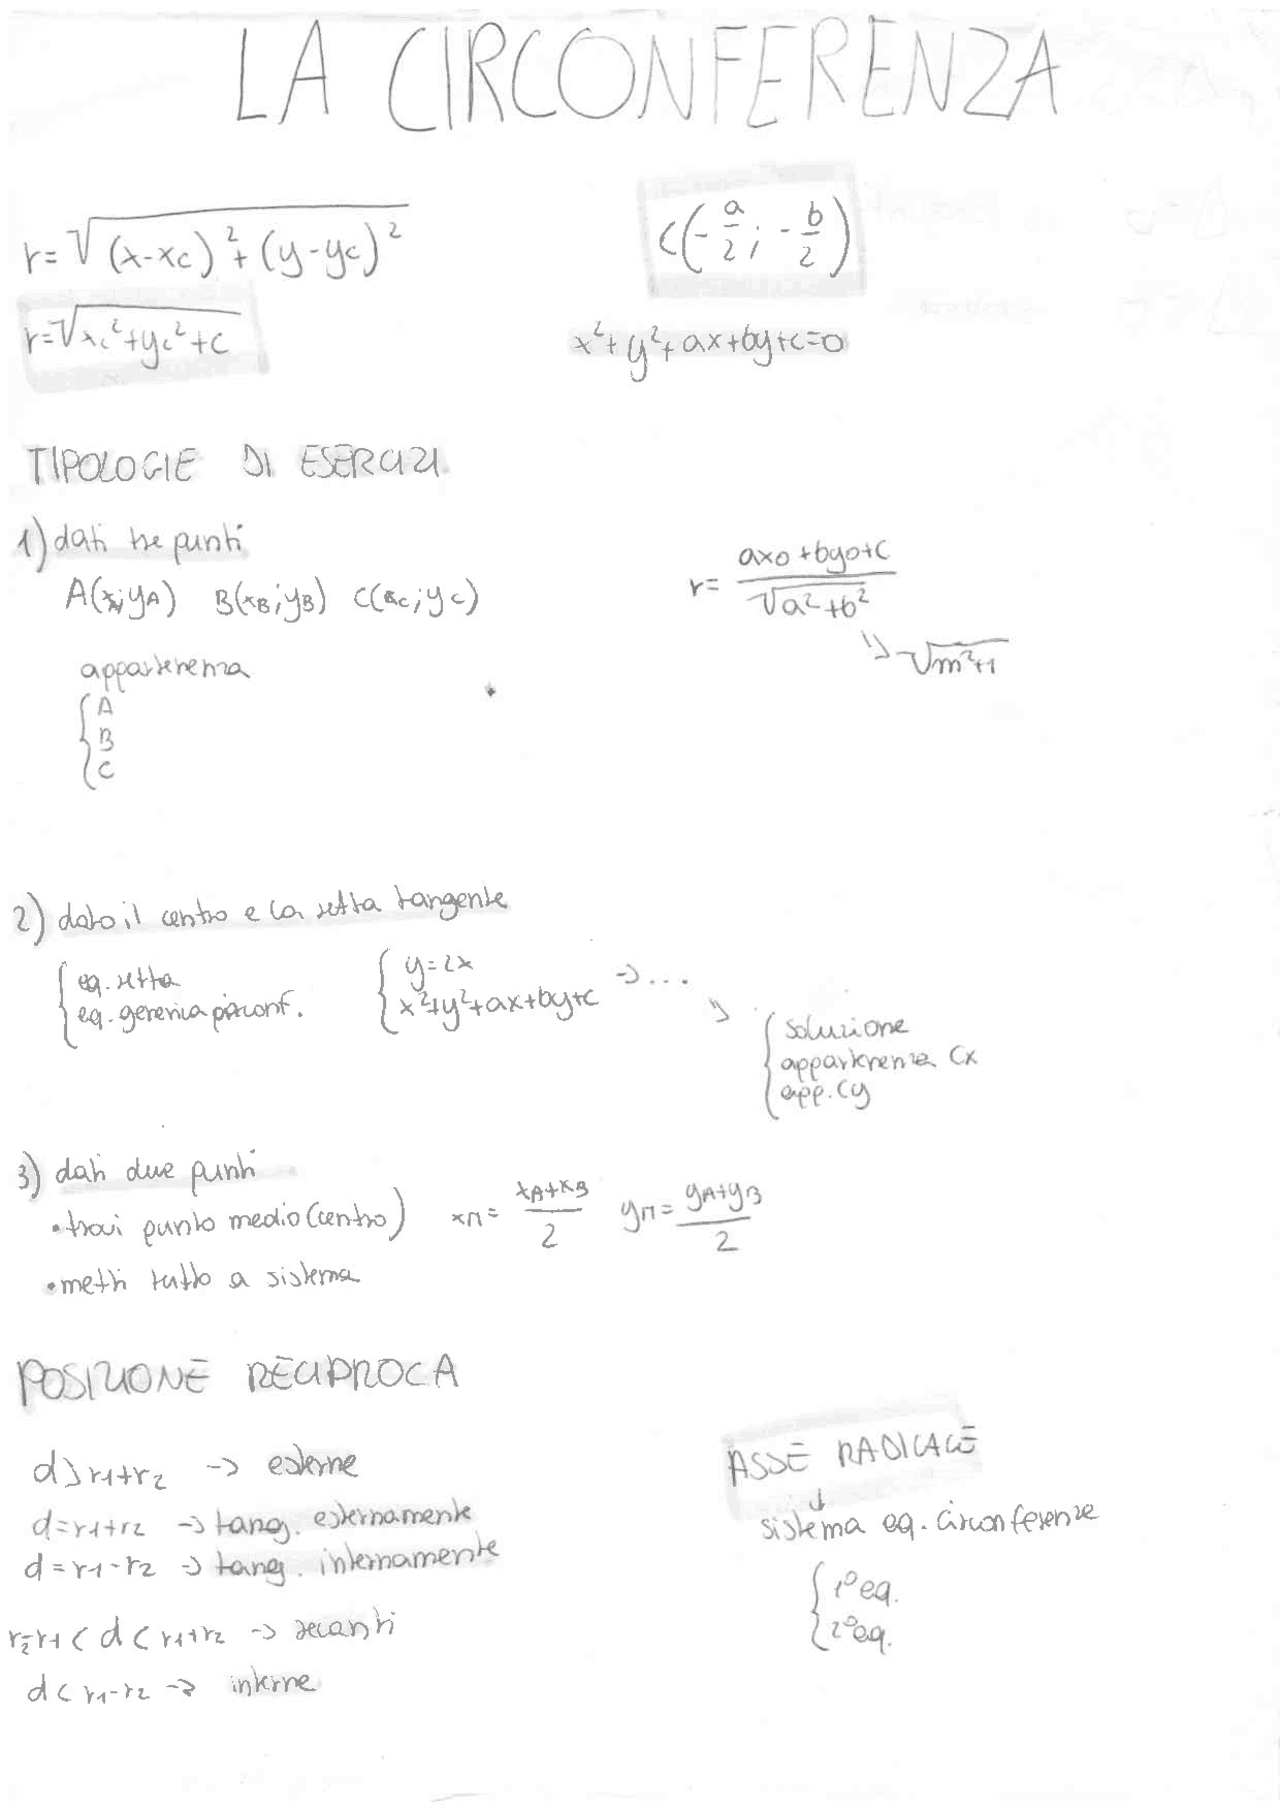 LA CIRCONFERENZA
r=√(x-xc)²+(y-yc)²
C(-a/2; -b/2)
r=√xc²+yc²+c
x²+y²+ax+by+c=0
TIPOLOGIE DI ESERCIZI
1) dati tre punti
A(xA;yA) B(xB;yB) C(xc;yc)
r= axo+byo+c / √a²+b²
→ √m²+1
appartenenza
{ A
B
C
2) dato il centro e la retta tangente
{ eq. retta
eq. generica circonf.
{ y=2x
x²+y²+ax+by+c
→ ...
→ { soluzione
appartenenza Cx
app. Cy
3) dati due punti
• trovi punto medio (centro) xM= xA+xB / 2 yM= yA+yB / 2
• metti tutto a sistema
POSIZIONE RECIPROCA
d>r1+r2 → esterne
d=r1+r2 → tang. esternamente
d=r1-r2 → tang. internamente
r2-r1<d<r1+r2 → secanti
d<r1-r2 → interne
ASSE RADICALE
↓
sistema eq. circonferenze
{ 1° eq.
2° eq.